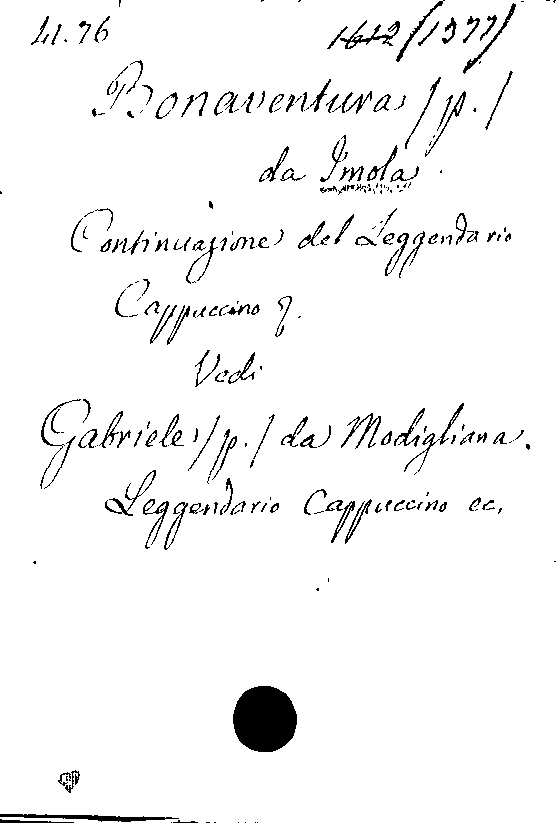 41.76 1612 /1377/
Bonaventura /p./
da Imola.
Continuazione del Leggendario
Cappuccino
Vedi
Gabriele /p./ da Modigliana.
Leggendario Cappuccino ec.